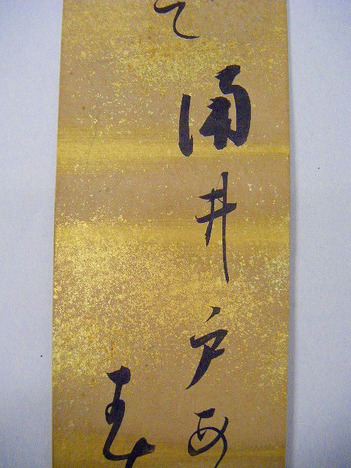 て涌井戸あ